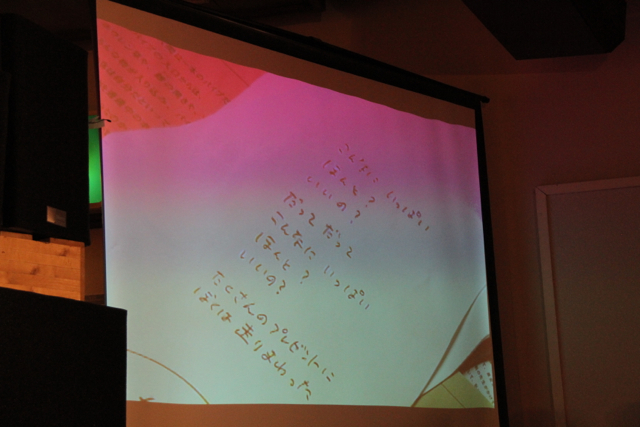 こんなに いっぱい
ほんと?
いいの?
だって だって
こんなに いっぱい
ほんと?
いいの?
たくさんのプレゼントに
ぼくは走りまわった